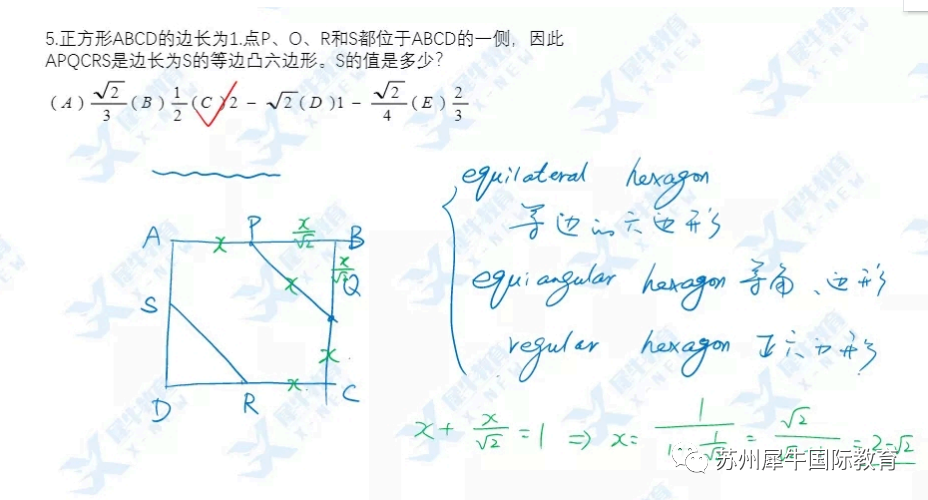 5.正方形ABCD的边长为1.点P、O、R和S都位于ABCD的一侧，因此
APQCRS是边长为S的等边凸六边形。S的值是多少?
(A) √2/3 (B) 1/2 (C) 2 - √2 (D) 1 - √2/4 (E) 2/3
equilateral hexagon
等边的六边形
equiangular hexagon 等角六边形
regular hexagon 正六边形
A x P x/√2 B
x/√2
S x Q
x
D R x C
x + x/√2 = 1 ⇒ x = 1/(1+1/√2) = √2/(√2+1) = 2-√2
苏州犀牛国际教育
犀牛教育
X-NEW